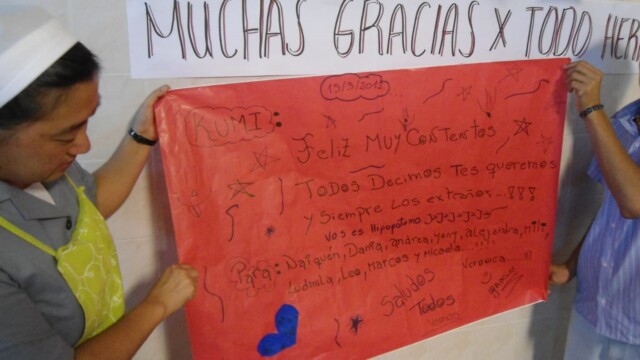 MUCHAS GRACIAS X TODO HER
19/9/2012
RUMI:
Feliz MUY CONTENTOS
TODOS Decimos Tes queremos
y siempre Los extraños...!!!
VOS es Hipopotamo
Para: Naiquen, Dania, andrea, yony, alejandra, Mili,
Ludmila, Leo, Marcos y Micaela.....
Veronica....!!
Saludos
Todos